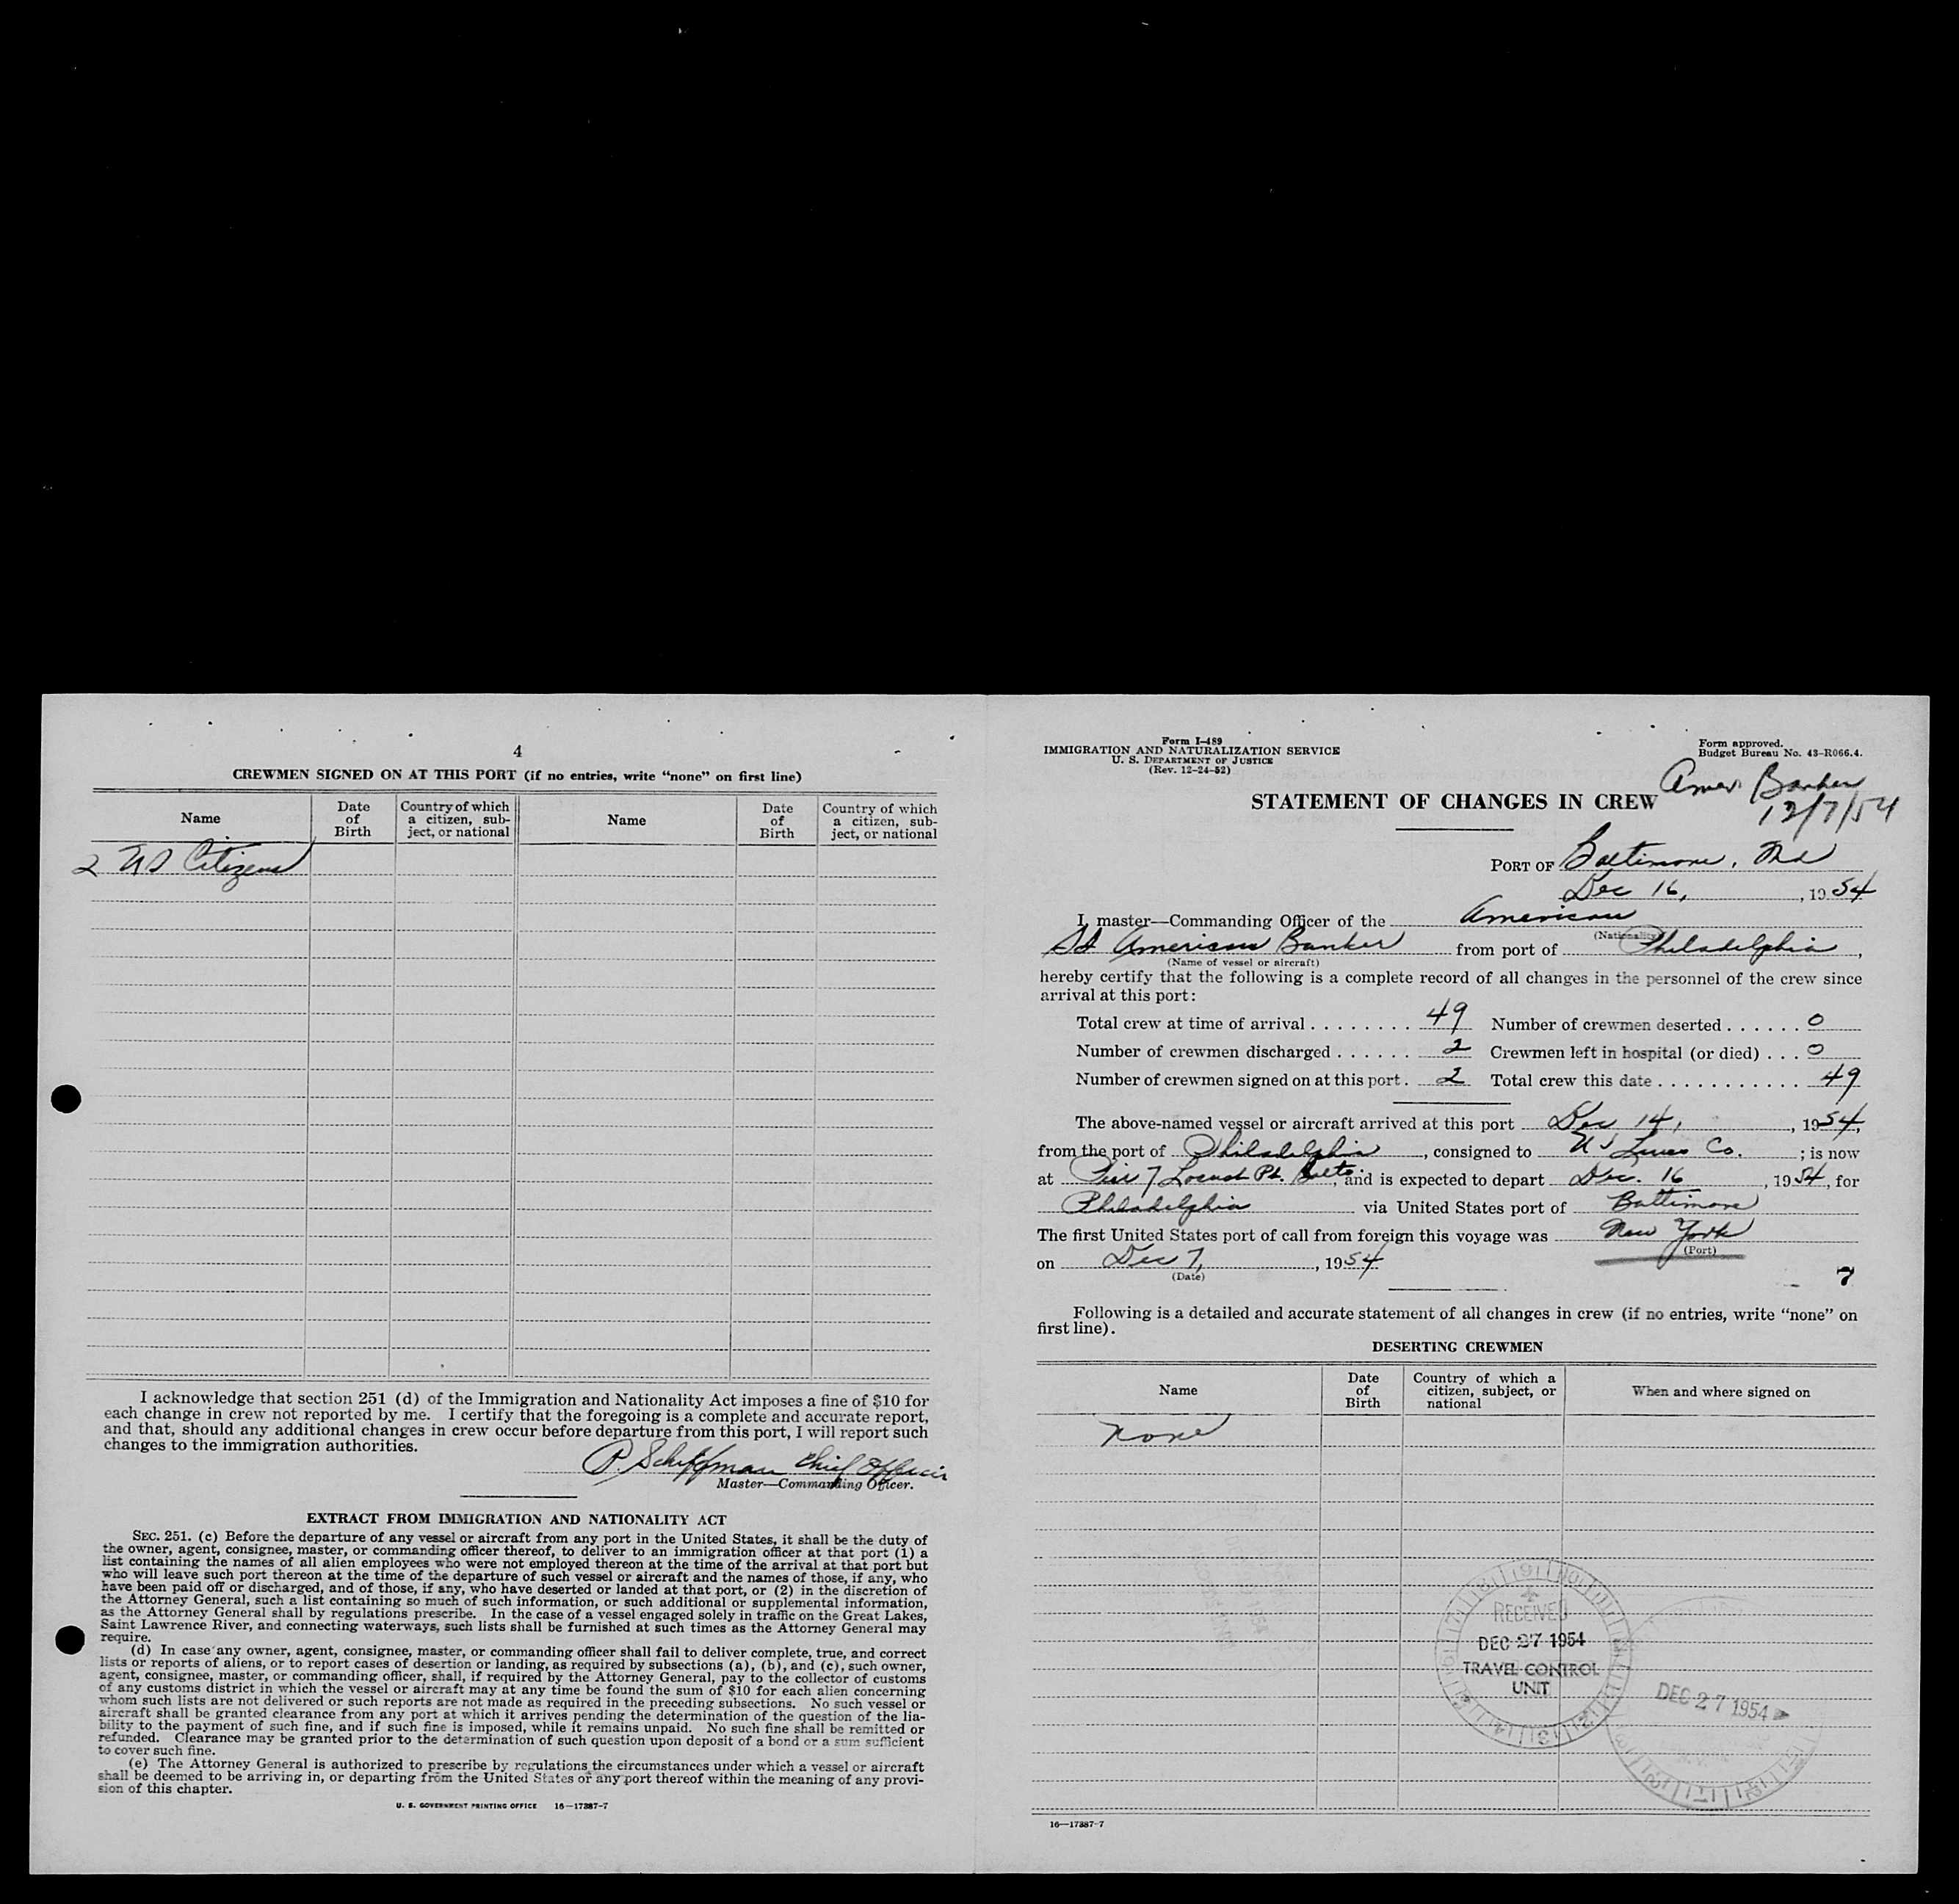 4
CREWMEN SIGNED ON AT THIS PORT (if no entries, write “none” on first line)
Name
Date of Birth
Country of which a citizen, subject, or national
Name
Date of Birth
Country of which a citizen, subject, or national
2 US Citizens
I acknowledge that section 251 (d) of the Immigration and Nationality Act imposes a fine of $10 for
each change in crew not reported by me. I certify that the foregoing is a complete and accurate report,
and that, should any additional changes in crew occur before departure from this port, I will report such
changes to the immigration authorities.
Chief Officer
Master—Commanding Officer.
EXTRACT FROM IMMIGRATION AND NATIONALITY ACT
SEC. 251. (c) Before the departure of any vessel or aircraft from any port in the United States, it shall be the duty of
the owner, agent, consignee, master, or commanding officer thereof, to deliver to an immigration officer at that port (1) a
list containing the names of all alien employees who were not employed thereon at the time of the arrival at that port but
who will leave such port thereon at the time of the departure of such vessel or aircraft and the names of those, if any, who
have been paid off or discharged, and of those, if any, who have deserted or landed at that port, or (2) in the discretion of
the Attorney General, such a list containing so much of such information, or such additional or supplemental information,
as the Attorney General shall by regulations prescribe. In the case of a vessel engaged solely in traffic on the Great Lakes,
Saint Lawrence River, and connecting waterways, such lists shall be furnished at such times as the Attorney General may
require.
(d) In case any owner, agent, consignee, master, or commanding officer shall fail to deliver complete, true, and correct
lists or reports of aliens, or to report cases of desertion or landing, as required by subsections (a), (b), and (c), such owner,
agent, consignee, master, or commanding officer, shall, if required by the Attorney General, pay to the collector of customs
of any customs district in which the vessel or aircraft may at any time be found the sum of $10 for each alien concerning
whom such lists are not delivered or such reports are not made as required in the preceding subsections. No such vessel or
aircraft shall be granted clearance from any port at which it arrives pending the determination of the question of the lia-
bility to the payment of such fine, and if such fine is imposed, while it remains unpaid. No such fine shall be remitted or
refunded. Clearance may be granted prior to the determination of such question upon deposit of a bond or a sum sufficient
to cover such fine.
(e) The Attorney General is authorized to prescribe by regulations the circumstances under which a vessel or aircraft
shall be deemed to be arriving in, or departing from the United States or any port thereof within the meaning of any provi-
sion of this chapter.
U. S. GOVERNMENT PRINTING OFFICE 16—17387-7
Form I-489
IMMIGRATION AND NATURALIZATION SERVICE
U. S. DEPARTMENT OF JUSTICE
(Rev. 12-24-52)
Form approved.
Budget Bureau No. 43-R066.4.
Amer Banker
12/7/54
STATEMENT OF CHANGES IN CREW
PORT OF Baltimore, Md
Dec 16, , 1954
I, master—Commanding Officer of the American
(Nationality)
SS American Banker from port of Philadelphia ,
(Name of vessel or aircraft)
hereby certify that the following is a complete record of all changes in the personnel of the crew since
arrival at this port:
Total crew at time of arrival . . . . . . . . 49 Number of crewmen deserted . . . . . . 0
Number of crewmen discharged . . . . . . 2 Crewmen left in hospital (or died) . . . 0
Number of crewmen signed on at this port . 2 Total crew this date . . . . . . . . . . . . 49
The above-named vessel or aircraft arrived at this port Dec 14, , 1954,
from the port of Philadelphia , consigned to US Lines Co. ; is now
at Pier 7 Locust Pt. Balto., and is expected to depart Dec. 16 , 1954, for
Philadelphia via United States port of Baltimore
The first United States port of call from foreign this voyage was New York
(Port)
on Dec 7, , 1954
(Date)
7
Following is a detailed and accurate statement of all changes in crew (if no entries, write “none” on
first line).
DESERTING CREWMEN
Name
Date of Birth
Country of which a citizen, subject, or national
When and where signed on
None
RECEIVED
DEC 27 1954
TRAVEL CONTROL
UNIT
DEC 27 1954
16—17387-7